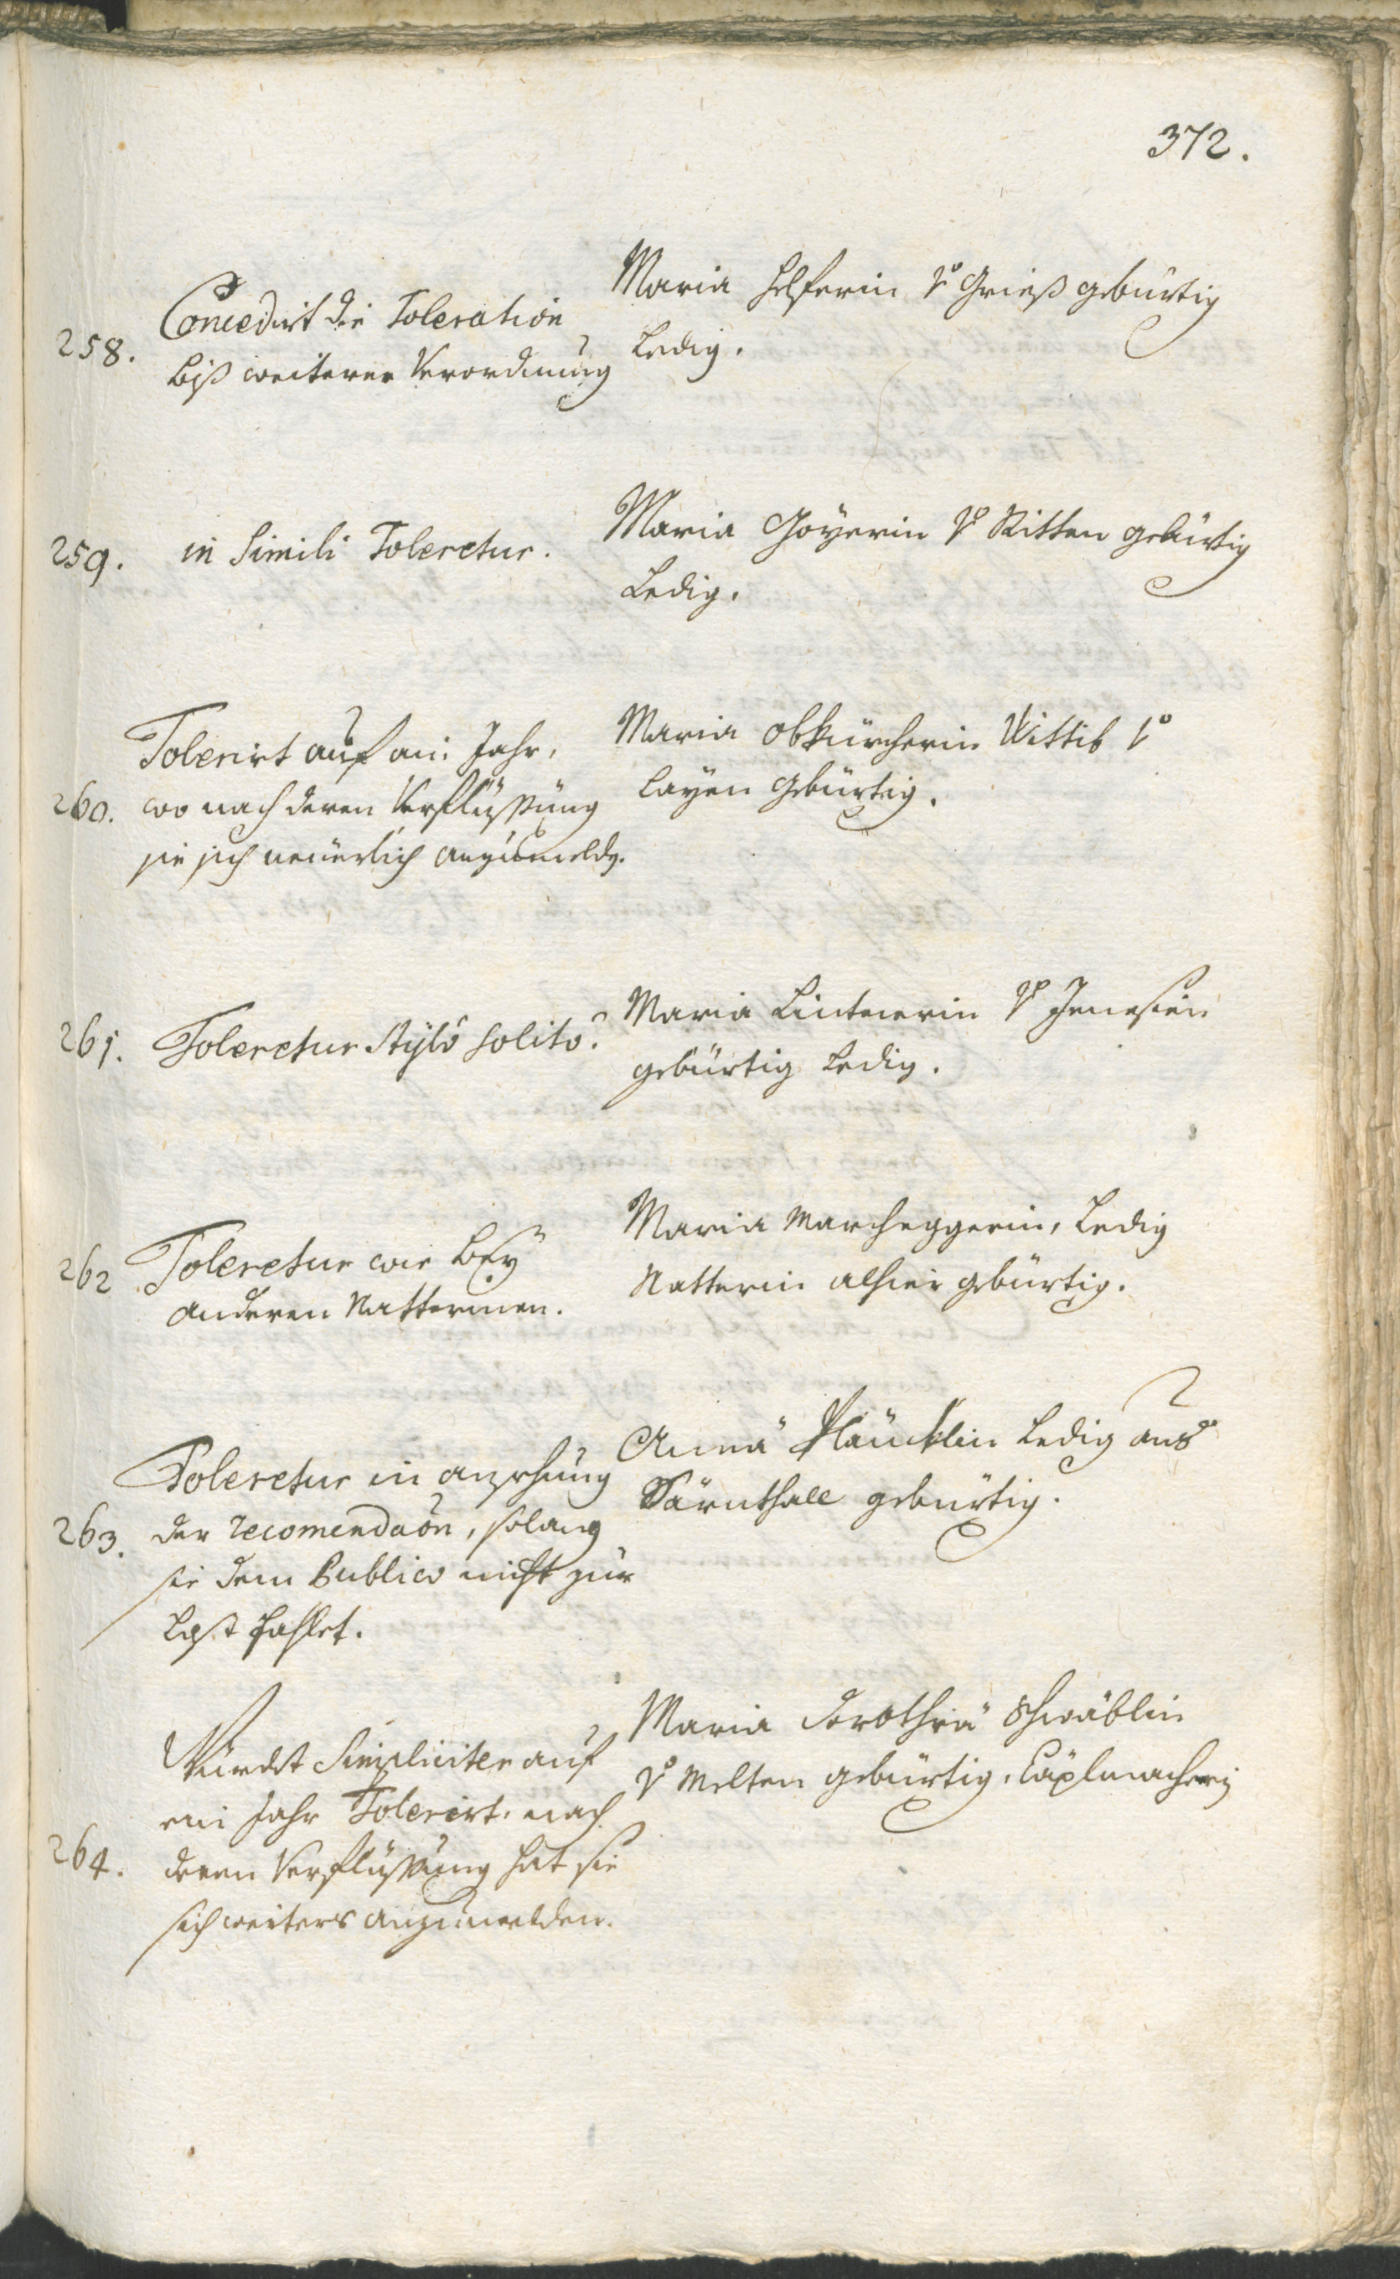 372.
258.
Concedirt die Toleration
biß weiterer Verordnung
Maria Helferin vo Grieß gebürtig
Ledig.
259.
in Simili Toleretur.
Maria Goÿerin vo Ritten gebürtig
Ledig.
Tolerirt auf ain Jahr,
260. wo nach deren Verflüssung
sie sich neüerlich anzumeldn.
Maria obkürcherin Wittib vo
Layen gebürtig.
261. Toleretur stÿlo solito.
Maria Lintnerin vo Jenesien
gebürtig Ledig.
262 Toleretur wie beÿ
anderen Natterinen.
Maria Marcheggerin, Ledig
Natterin alhier gebürtig.
Toleretur in anzehung
263. der recomendaon, solang
sie dem Publico nicht zur
Last fahlet.
Anna Ledig aus
Särnthall gebürtig.
Würdet Simpliciter auf
ein Jahr Tolerirt, nach
264. deren Verflüssung hat sie
sich weiters anzumelden.
Maria Dorothea Schwäblin
vo Melten gebürtig,